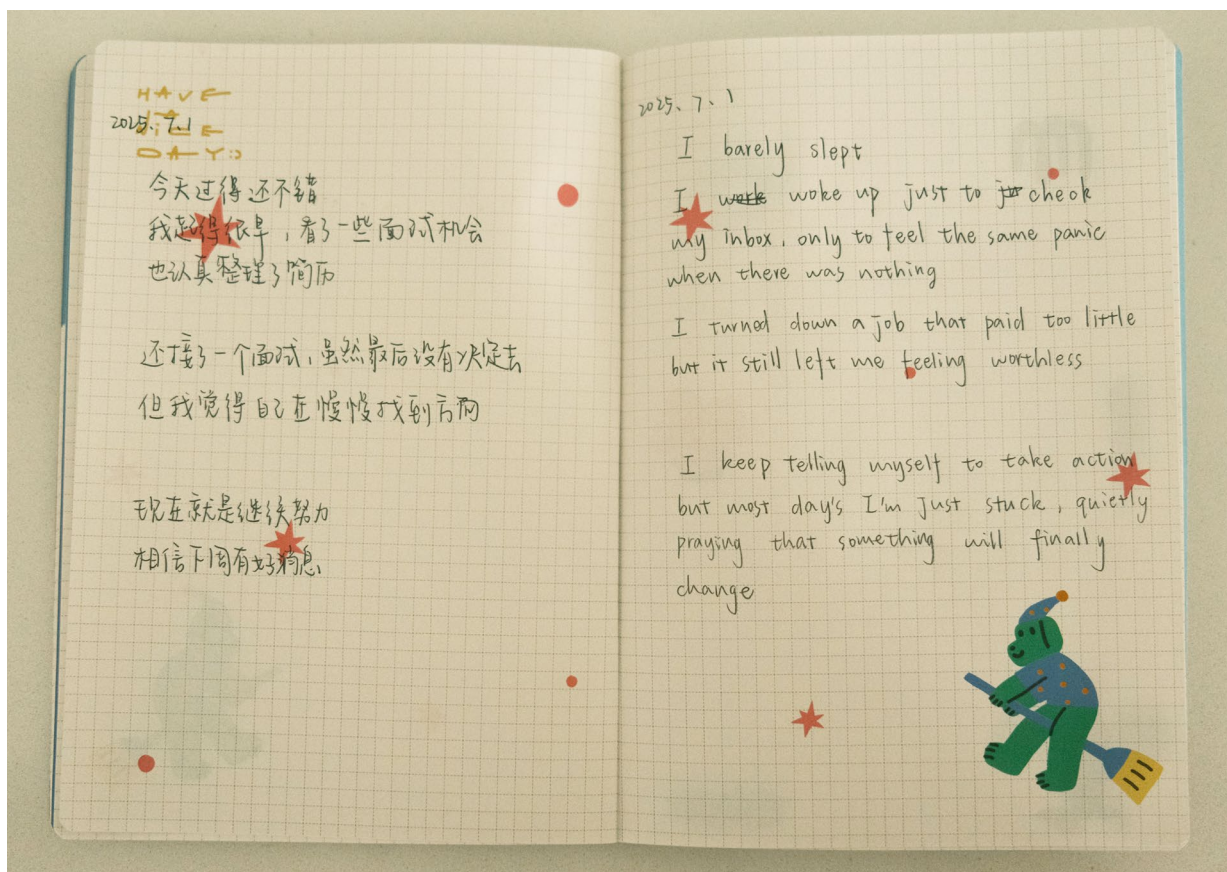 HAVE
A
NICE
DAY:)
2025、7、1
今天过得还不错
我起得很早，看了一些面试机会
也认真整理了简历
还接了一个面试，虽然最后没有决定去
但我觉得自己在慢慢找到方向
现在就是继续努力
相信下周有好消息
2025、7、1
I barely slept
I work woke up just to jut check
my inbox, only to feel the same panic
when there was nothing
I turned down a job that paid too little
but it still left me feeling worthless
I keep telling myself to take action
but most day's I'm just stuck, quietly
praying that something will finally
change